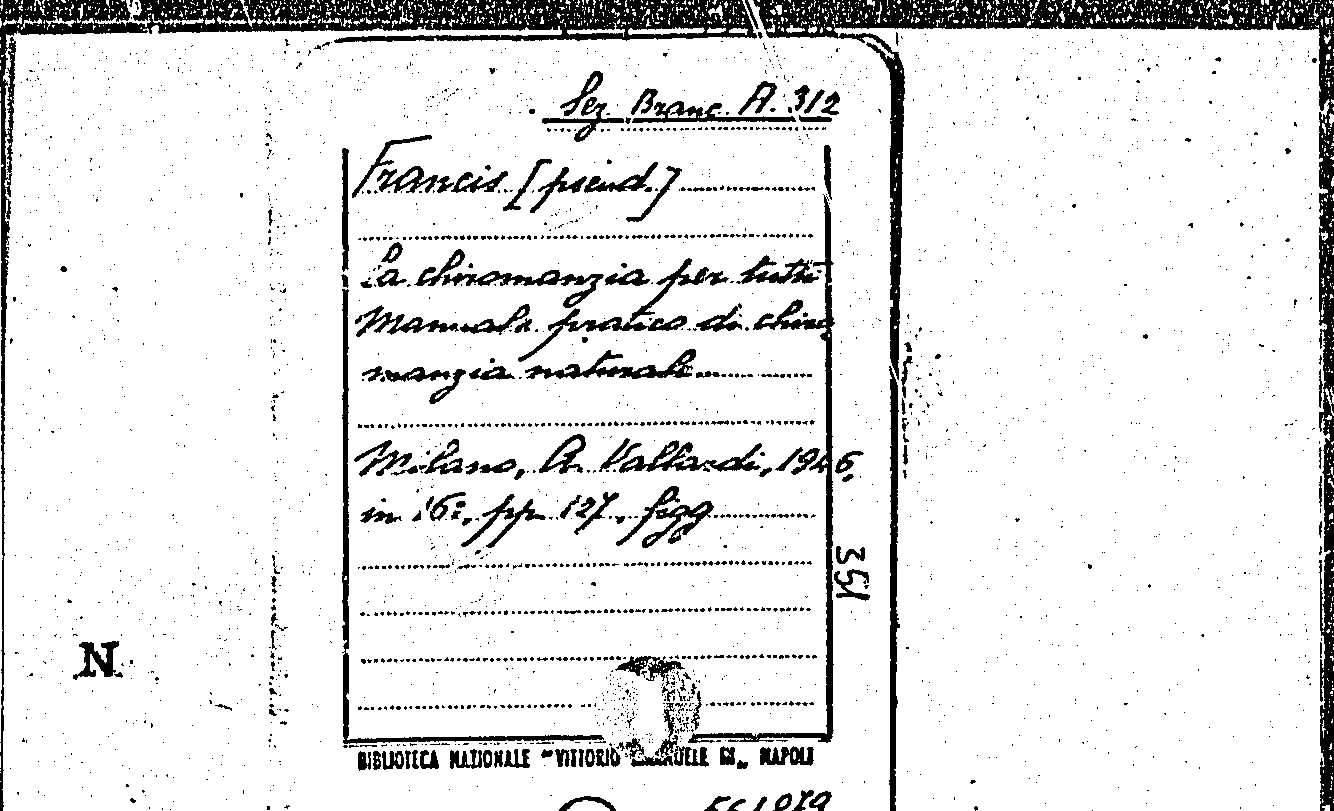 Sez. Branc. A. 312
Francis [pseud.]
La chiromanzia per tutti
Manuale pratico di chiro
manzia naturale...
Milano, A. Vallardi, 1946,
in 16°, pp. 127, figg
351
N.
BIBLIOTECA NAZIONALE "VITTORIO EMANUELE III„ NAPOLI